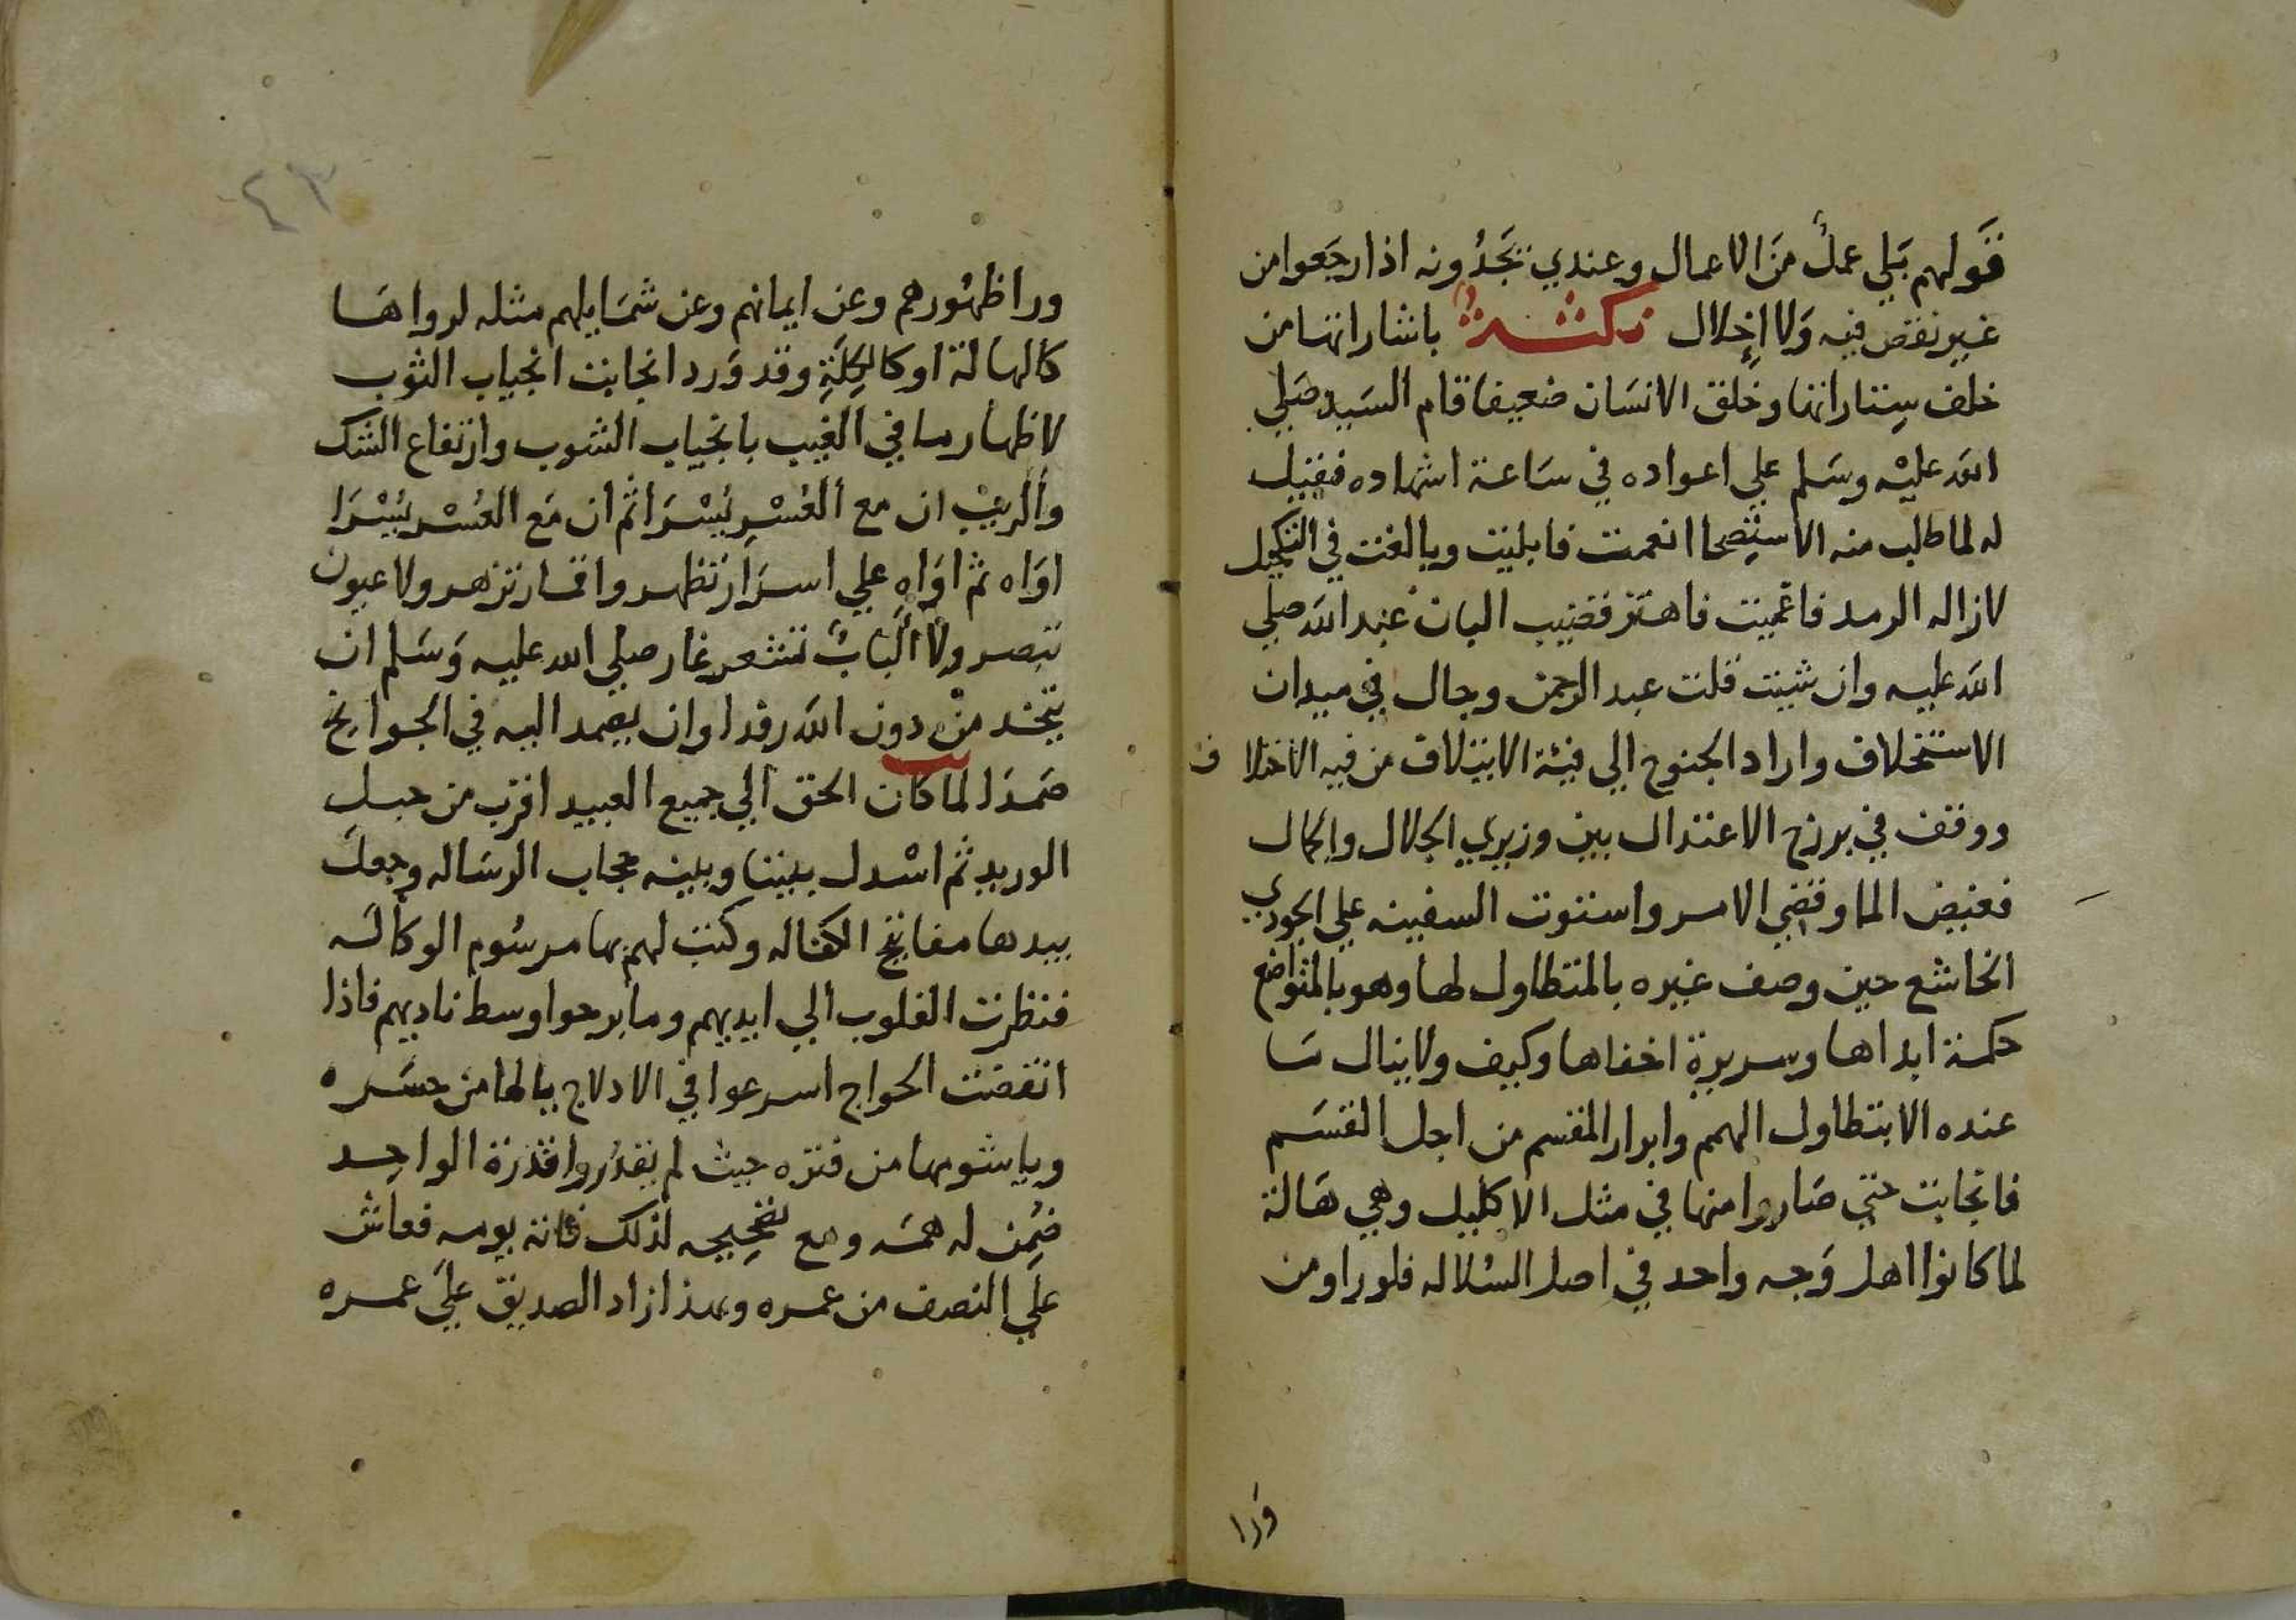 فقولهم بَلي عملٌ مَن الاعمال وعندي تجَدُونه اذا رجَعوا من
غير نقص فيه وَلا إخلال نكتــةٌ باشاراتها من
خلف سِتاراتها وخُلق الانسَان ضعيفا قام السَيد صَلي
الله عليْه وسَلم علي اعواده في سَاعة اشهاده فقيل
له لما طلب منه الاستِصحا انعمت فابليت وبالغت في التكميل
لازاله الرمد فاعميت فاهتز قضيب البان عبد الله صلي
الله عليه وان شيت قلت عبد الرحمن وجال في ميدان
الاستخلاف واراد الجنوح الي فيئة الايتلاف من فيه الاختلاف
ووقف في برزخ الاعتدال بين وزيري الجلال والجمال
فغيض الما وقضي الامر واستوت السفينه علي الجودي
الخاشع حين وصف غيره بالمتطاول لها وهو بالمتواضع
حكمة ابداها وسريرة اخفاها وكيف ولا ينال مَا
عنده الا بتطاول الهمم وابرار المقسم من اجل القسَم
فانجابت حتي صَاروا منها في مثل الاكليل وهي هَالة
لما كانوا اهل وَجه واحد في اصل السُلاله فلو راو من
وَرا
٤٣
ورا ظهُورهم وعن ايمانهم وعن شمَايلهم مثله لرواهَا
كالهالة او كالكِلَةِ وقد وَرد انجابت انجياب الثوب
لاظهار ما في الغيب بانجياب الشوب وارتفاع الشك
والريبْ ان مع العُسْرِ يُسْرَا ثم ان مَع العُسْر يُسْرَا
اوَاه ثم اوَاهِ علي اسرَار تظهر واقمار تزهر ولا عيون
تبصر ولا البابٌ تشعر غار صلي الله عليه وَسَلم ان
يتخذ منْ دون الله رفدا وان يصمد اليه في الجوايح
صَمدَا لما كان الحق الي جميع العبيد اقرب من حبل
الوريد ثم اسْدل بيننا وبينه حجاب الرسَاله وجعل
بيدها مفاتيح الكفاله وكتب لهم بها مرسُوم الوكاله
فنظرت القلوب الي ايديهم وما برحوا وسط ناديهم فاذا
انقضت الحوايج اسرعوا في الادلاج يا لها من حسَره
ويا شومها من فتره حيث لم يقدُروا قدرَة الواحِد
ضُمِن له همَه ومع تصحِيحِه لذلك فاته يومه فعاش
علي النصف من عمره وبهذا زاد الصديق عليَ عمره